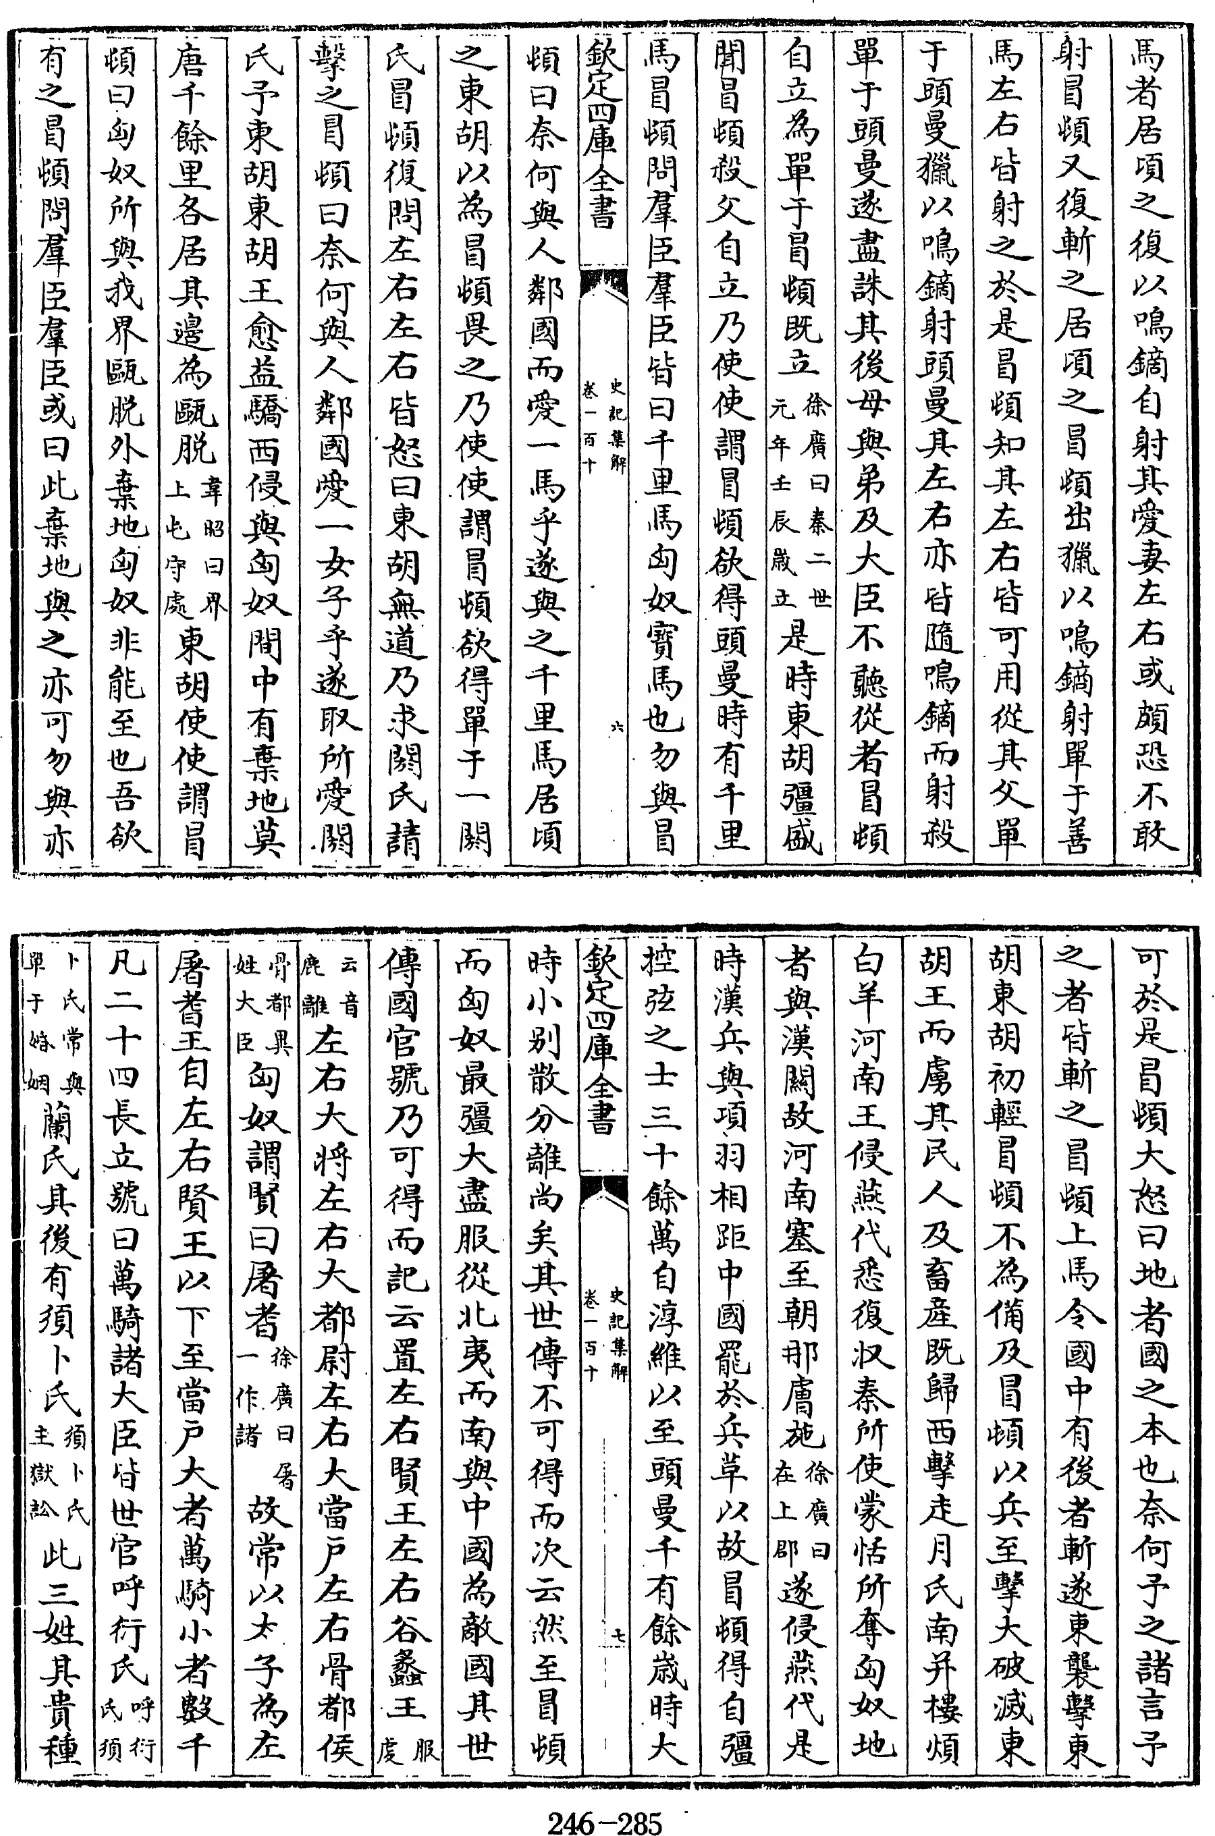 馬者居頃之復以鳴鏑自射其愛妻左右或頗恐不敢
射冒頓又復斬之居頃之冒頓出獵以鳴鏑射單于善
馬左右皆射之於是冒頓知其左右皆可用從其父單
于頭曼獵以鳴鏑射頭曼其左右亦皆隨鳴鏑而射殺
單于頭曼遂盡誅其後母與弟及大臣不聽從者冒頓
自立為單于冒頓既立徐廣曰秦二世元年壬辰嵗立是時東胡彊盛
聞冒頓殺父自立乃使使謂冒頓欲得頭曼時有千里
馬冒頓問羣臣羣臣皆曰千里馬匈奴寶馬也勿與冒
欽定四庫全書 史記集解 卷一百十 六
頓曰奈何與人鄰國而愛一馬乎遂與之千里馬居頃
之東胡以為冒頓畏之乃使使謂冒頓欲得單于一閼
氏冒頓復問左右左右皆怒曰東胡無道乃求閼氏請
擊之冒頓曰奈何與人鄰國愛一女子乎遂取所愛閼
氏予東胡東胡王愈益驕西侵與匈奴間中有棄地莫
唐千餘里各居其邊為甌脱韋昭曰界上屯守處東胡使使謂冒
頓曰匈奴所與我界甌脱外棄地匈奴非能至也吾欲
有之冒頓問羣臣羣臣或曰此棄地與之亦可勿與亦
可於是冒頓大怒曰地者國之本也奈何予之諸言予
之者皆斬之冒頓上馬令國中有後者斬遂東襲擊東
胡東胡初輕冒頓不為備及冒頓以兵至擊大破滅東
胡王而虜其民人及畜産既歸西擊走月氏南并樓煩
白羊河南王侵燕代悉復收秦所使蒙恬所奪匈奴地
者與漢關故河南塞至朝那膚施徐廣曰在上郡遂侵燕代是
時漢兵與項羽相距中國罷於兵草以故冒頓得自彊
控弦之士三十餘萬自淳維以至頭曼千有餘嵗時大
欽定四庫全書 史記集解 卷一百十 七
時小别散分離尚矣其世傳不可得而次云然至冒頓
而匈奴最彊大盡服從北夷而南與中國為敵國其世
傳國官號乃可得而記云置左右賢王左右谷蠡王服虔
云音鹿離左右大將左右大都尉左右大當户左右骨都侯
骨都異姓大臣匈奴謂賢曰屠耆徐廣曰屠一作諸故常以太子為左
屠耆王自左右賢王以下至當户大者萬騎小者數千
凡二十四長立號曰萬騎諸大臣皆世官呼衍氏呼衍氏須
卜氏常與單于婚姻蘭氏其後有須卜氏須卜氏主獄訟此三姓其貴種
246-285